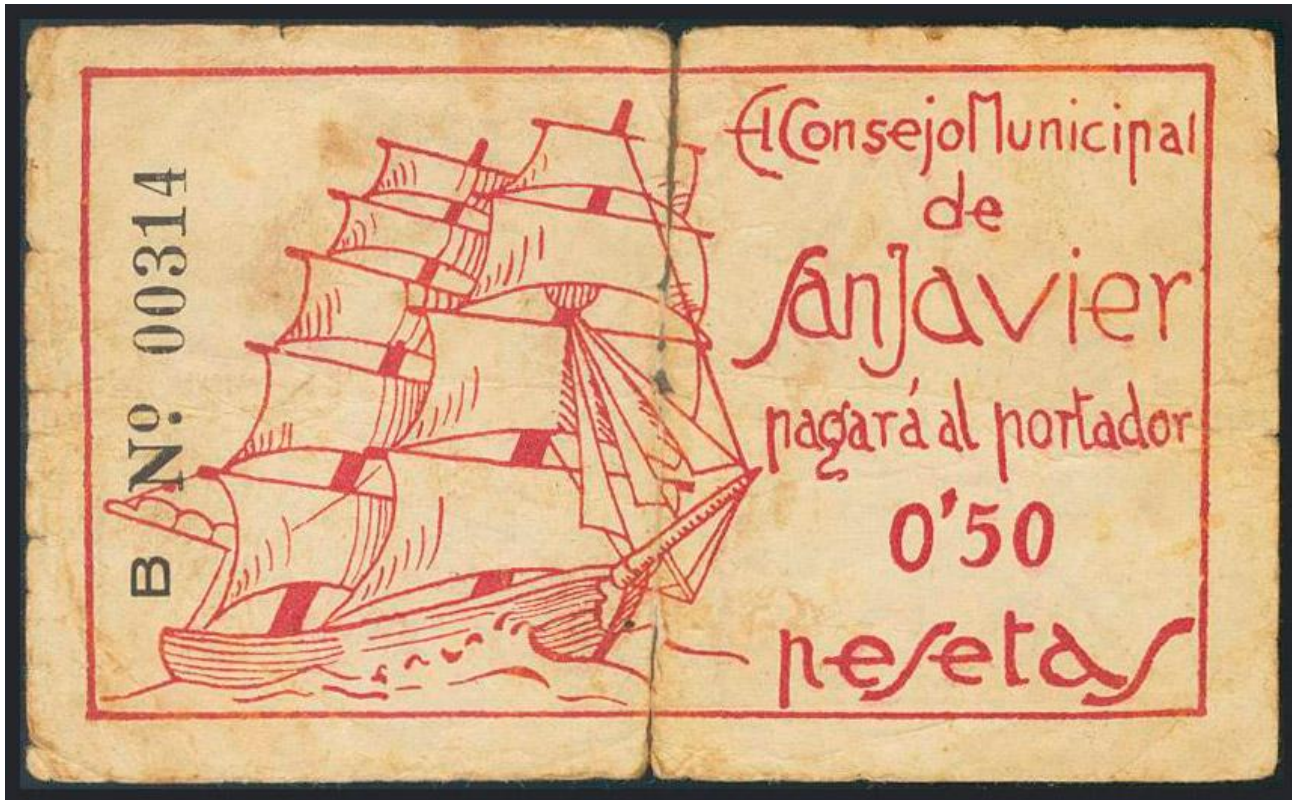 B Nº. 00314
El Consejo Municipal
de
San Javier
pagará al portador
0'50
pesetas